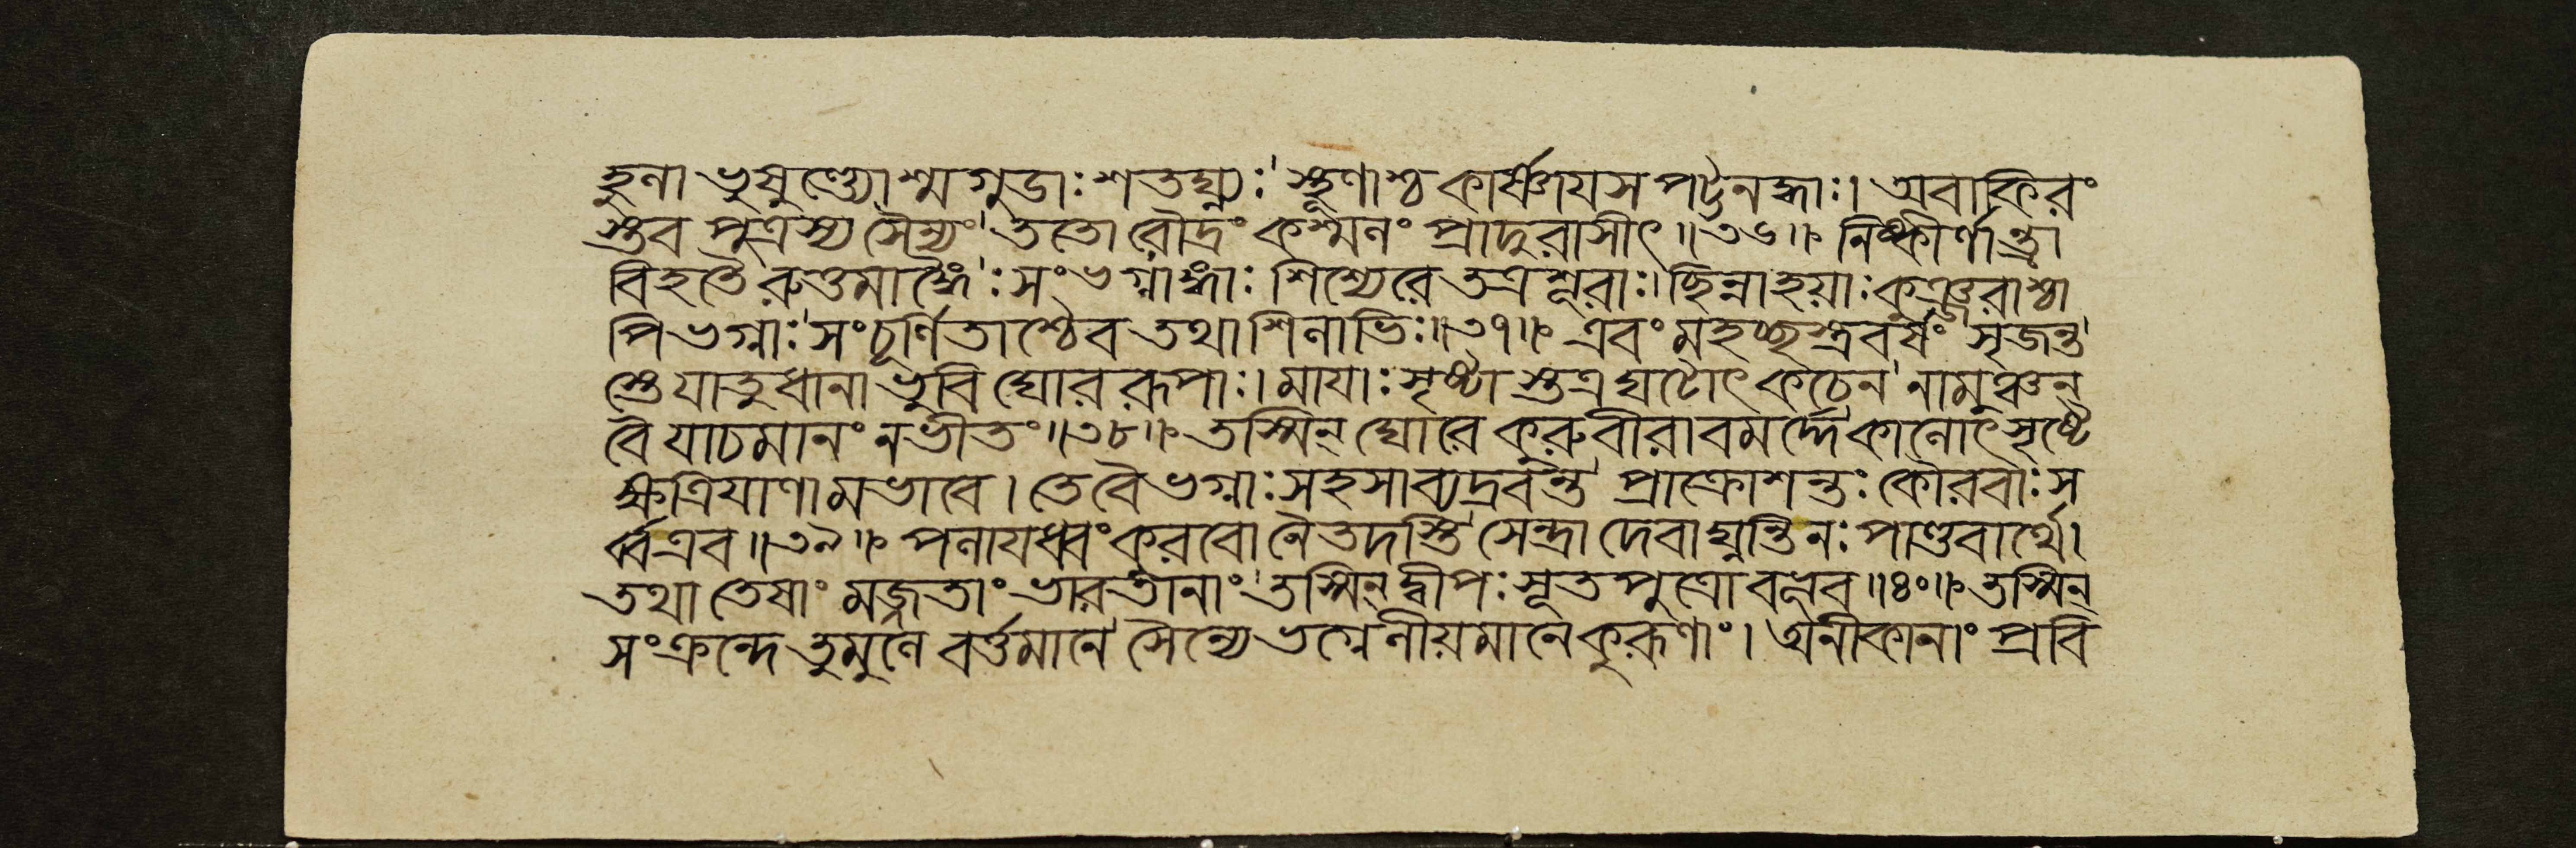 হুনা ভুষুণ্ড্যোশ্মগুডাঃ শতঘ্ন্যঃ স্থূণাশ্চ কার্ষ্ণাযসপট্টনদ্ধাঃ। অবাকিরং
স্তব পুত্রস্য সৈন্যং ততো রৌদ্রং কশ্মলং প্রাদুরাসীৎ॥৩৬॥ নিষ্কীর্ণান্ত্রা
বিহতৈরুত্তমাঙ্গৈঃ সংভগ্নাঙ্গাঃ শিশ্যেরে তত্র শূরাঃ। ছিন্না হয়াঃ কুঞ্জরাশ্চা
পি ভগ্নাঃ সংচূর্ণিতাশ্চৈব তথা শিলাভিঃ॥৩৭॥ এবং মহচ্ছস্ত্রবর্ষং সৃজন্ত
স্তে যাতুধানা ভুবি ঘোররূপাঃ। মাযাঃ সৃষ্টাস্তত্র ঘটোৎকচেন নামুঞ্চন্
বৈ যাচমানং ন ভীতং॥৩৮॥ তস্মিন্ ঘোরে কুরুবীরাবমর্দ্দে কালোৎসৃষ্টে
ক্ষত্রিযাণামভাবে। তে বৈ ভগ্নাঃ সহসা ব্যদ্রবন্ত প্রাক্রোশন্তঃ কৌরবাঃ স
র্ব্ব এব॥৩৯॥ পলাযধ্বং কুরবো নৈতদস্তি সেন্দ্রা দেবা ঘ্নন্তি নঃ পাণ্ডবার্থে।
তথা তেষাং মজ্জতাং ভারতানাং তস্মিন্ দ্বীপঃ সূতপুত্রো বভূব॥৪০॥ তস্মিন্
সংক্রন্দে তুমুলে বর্ত্তমানে সৈন্যে ভগ্নে লীয়মানে কুরূণাং। অনীকানাং প্রবি